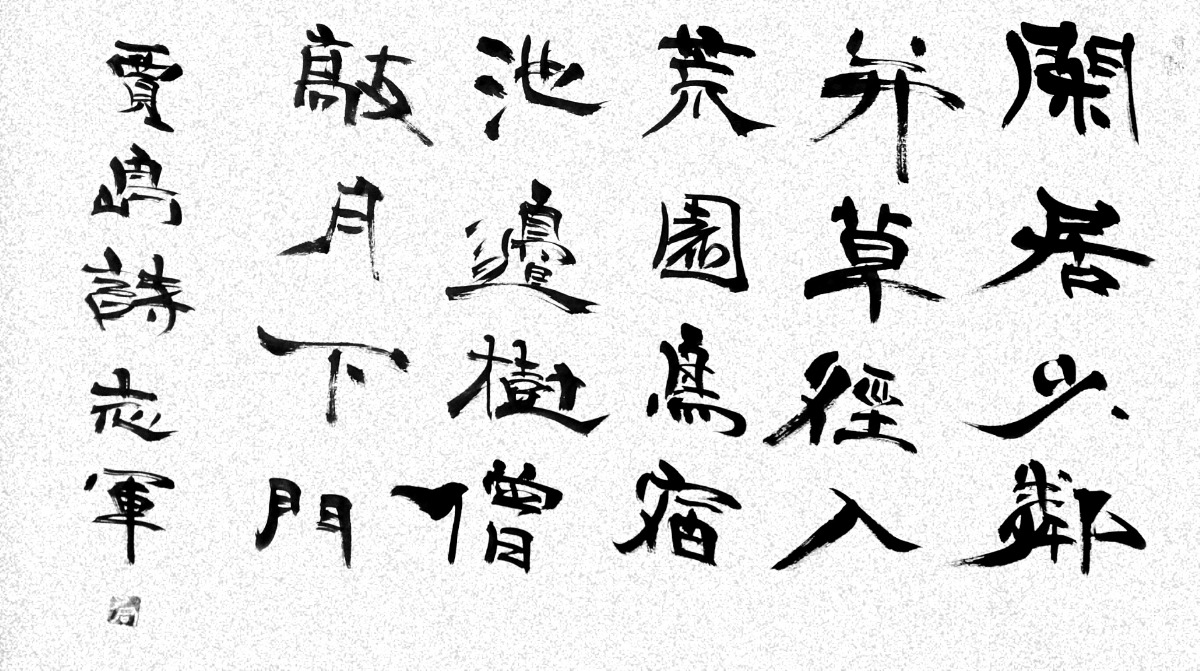 閑居少鄰
并草徑入
荒園鳥宿
池邊樹僧
敲月下門
賈島詩志軍